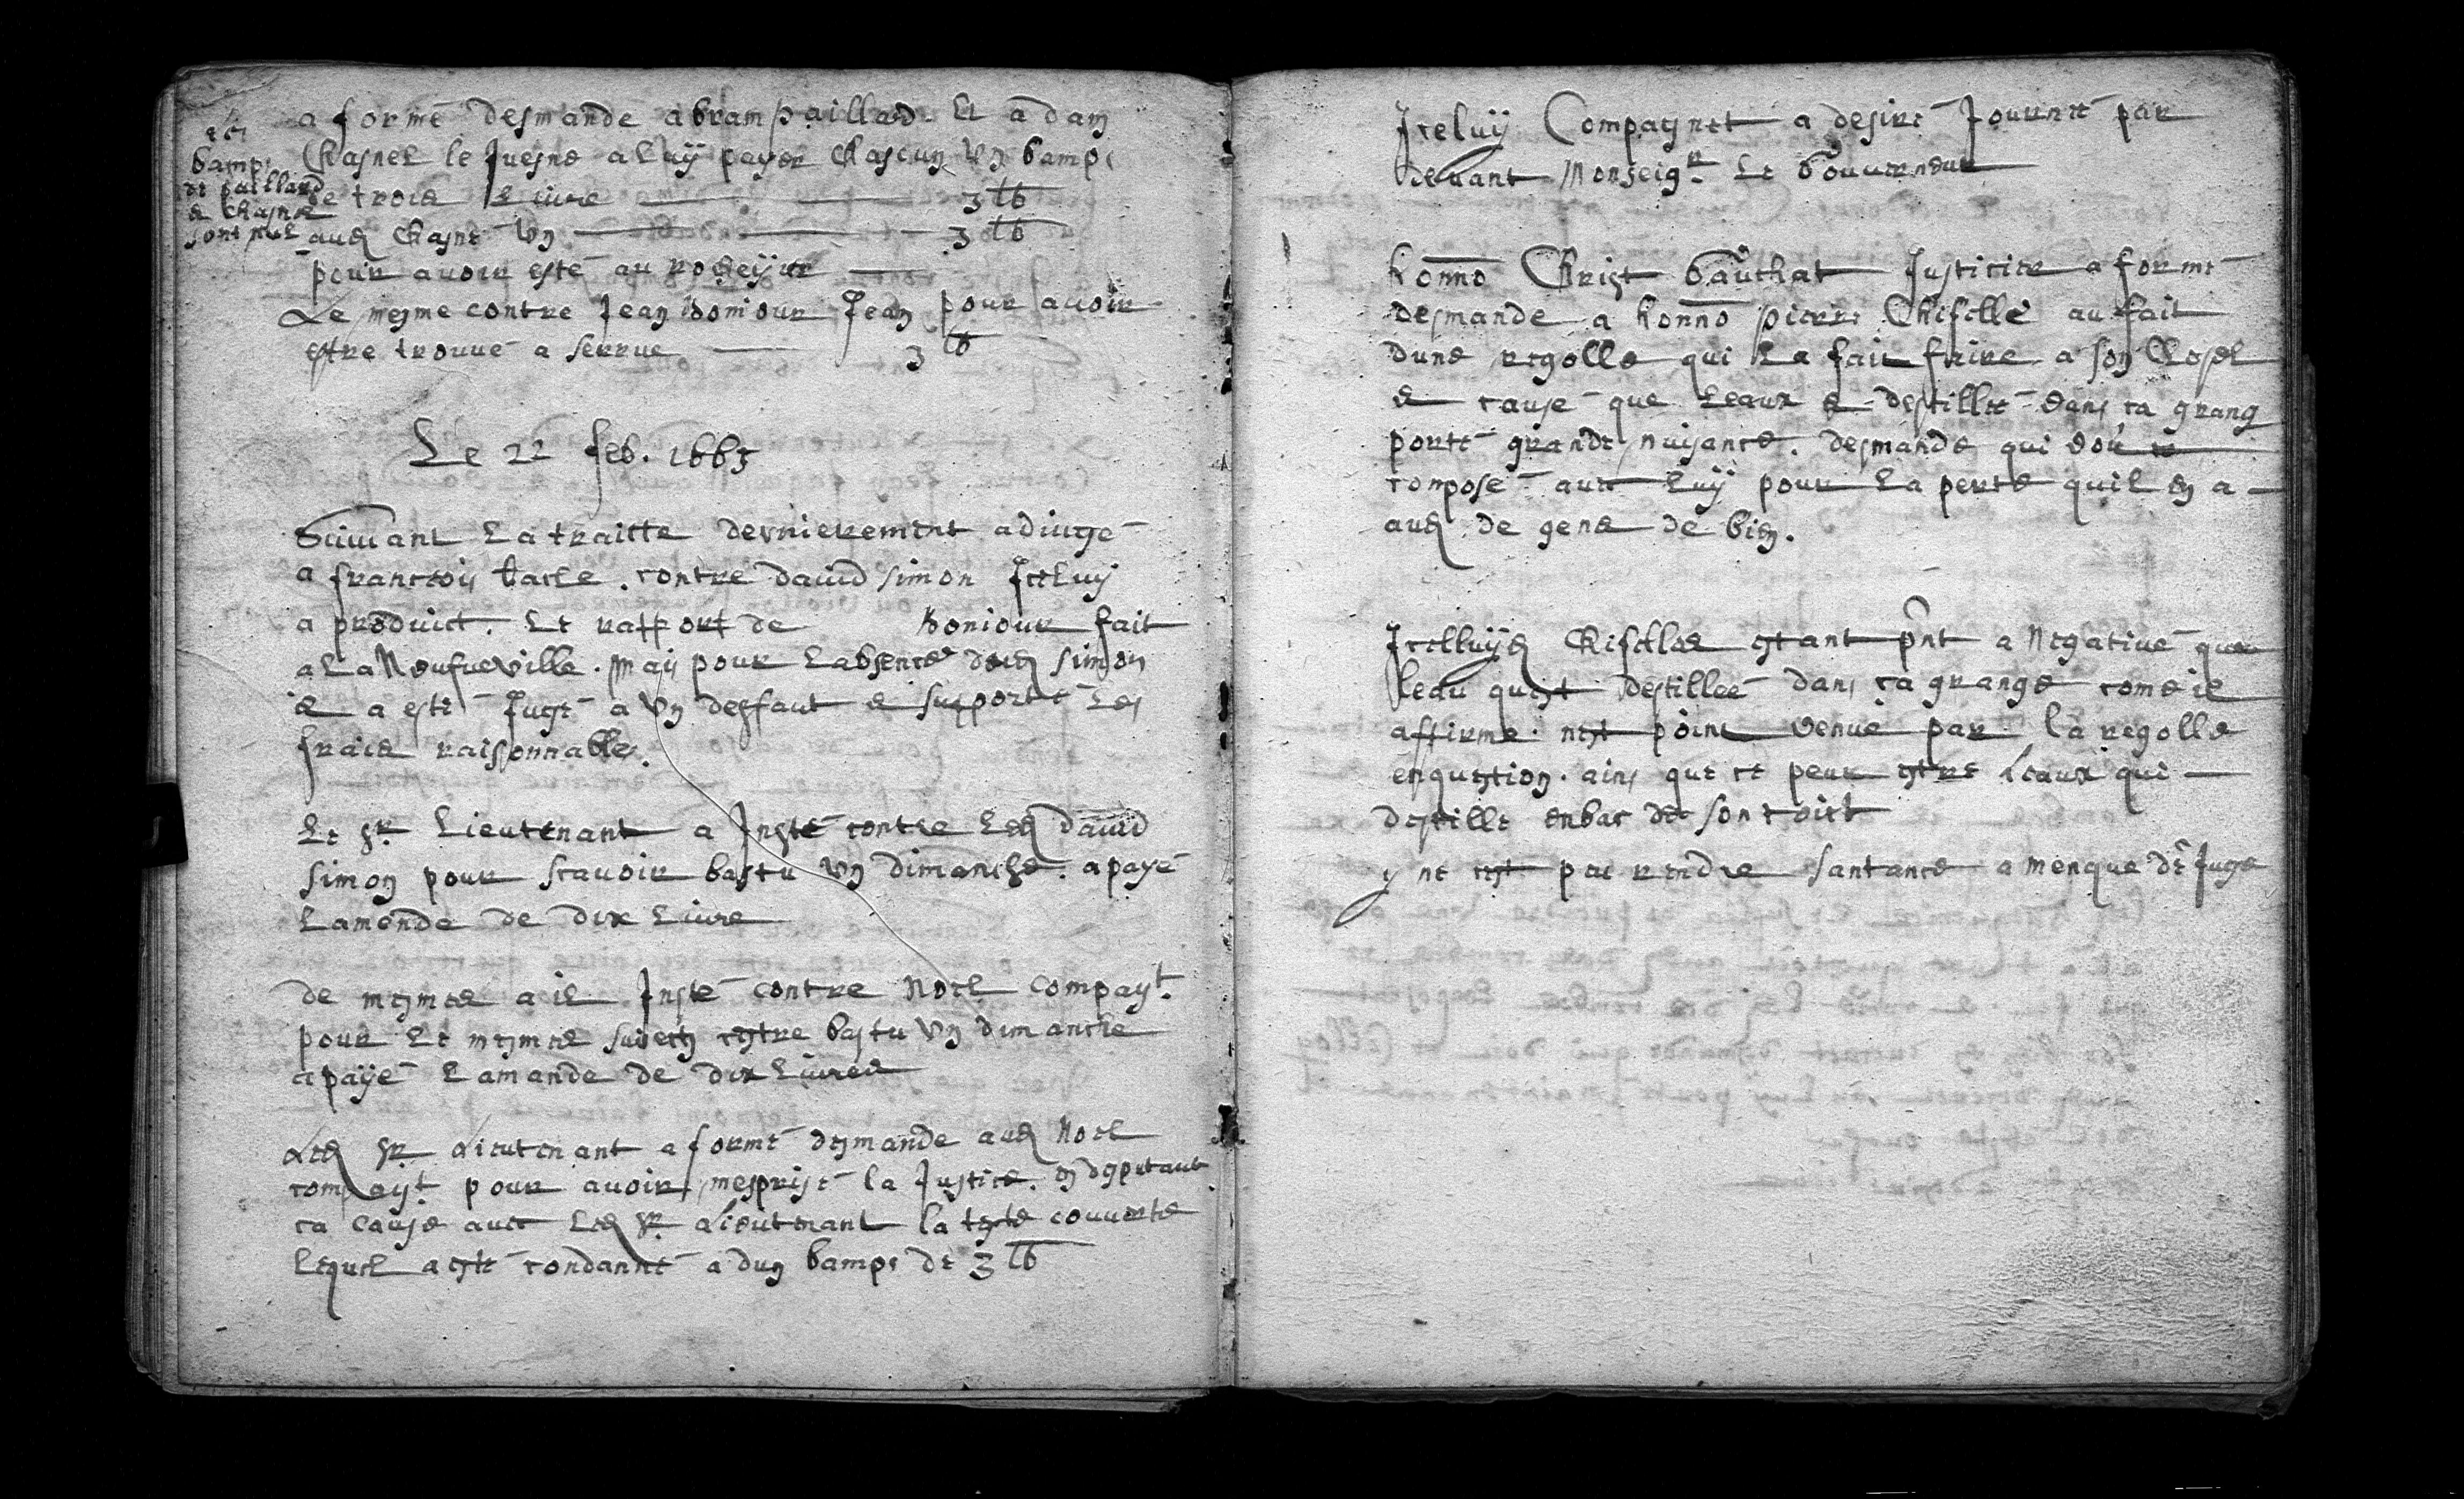 a formé desmande abram paillard Et a dam
Chasnel le Juesne a luÿ payer Chascun Vn bamps
de trois Liure 3 lb
aud Chasne Vn 3 lb
bamps
de paillard
& Chasne
sont nul
pour auoir esté au
Le mesme contre Jean bonjour Jean pour auoir
estre trouué a serrue 3 lb
Le 22 feb. 1665
Suiuant La traitte dernierement adiugé
a francois tacle. contre dauid simon Iceluy
a produict. Le rapport de bonjour fait
a La Neufueville. mais pour Labsence dud simon
il a esté Jugé a Vn desfaut & supporté Les
frais raisonnable.
Le sr Lieutenant a Insté contre Led dauid
simon pour scauoir bastu Vn dimanche. a payé
Lamende de dix Liure
de mesmes a il Insté contre Noel compayt.
pour Le mesmes estre bastu Vn dimanche
a paÿé Lamande de dix Liures
Led sr Lieutenant a formé desmande aud Noel
compayt. pour auoir mesprisé la Justice. en desputant
ca cause auec Led sr Lieutenant la teste couuerte
Lequel a esté condanné a dun bamps de 3 lb
Iceluÿ Compagnet a desiré Journée par
deuant Monseigr Le Gouuerneur
honno Christ Gauchat Justicier a formé
desmande a honno pierre Chiffellé au fait
dune rigolle qui La fait faire a son Closel
& cause que Leaux & destillée dans ca grang
porte grande nuisance. desmande qui doit
composé auec Luÿ pour La perte quil en a
aud de gens de bien.
Icelluÿd Chiffelle estant pnt a Negatiué que
leau quest destillée dans ca grange come il
affirme nest point venue par la regolle
enquestion. ains que ce peut estre Leaux qui
destille enbas de son toict
y ne cest pas rendre santance a menque de Juge